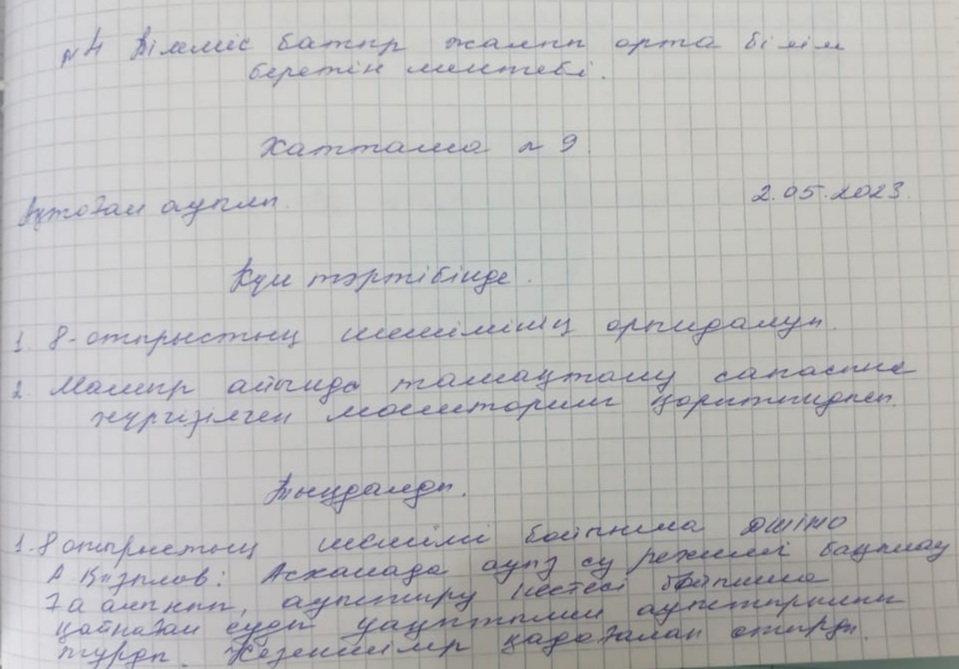 №4 Білміс батыр жалпы орта білім
беретін мектебі.
Хаттама №9
Ақтоған ауылы. 2.05.2023.
Күн тәртібінде.
1. 8-отырыстың шешімінің орындалуы.
2. Мамыр айында тамақтану сапасына
жүргізілген мониторинг қорытындысы.
Тыңдалды.
1. 8 отырыстың шешімі бойынша ДШІЖО
А Қызылов: Асханада ауыз су режимі бақылау
ға алынып, ауыстыру кестесі бойынша
қайнаған суды уақытылы ауыстырылып
тұрды. Кезекшілер қадағалап отырды.